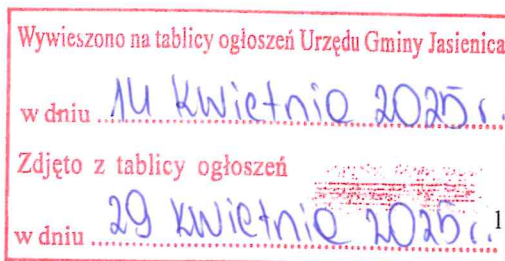 Wywieszono na tablicy ogłoszeń Urzędu Gminy Jasienica
w dniu 14 kwietnia 2025 r.
Zdjęto z tablicy ogłoszeń
w dniu 29 kwietnia 2025 r. 1